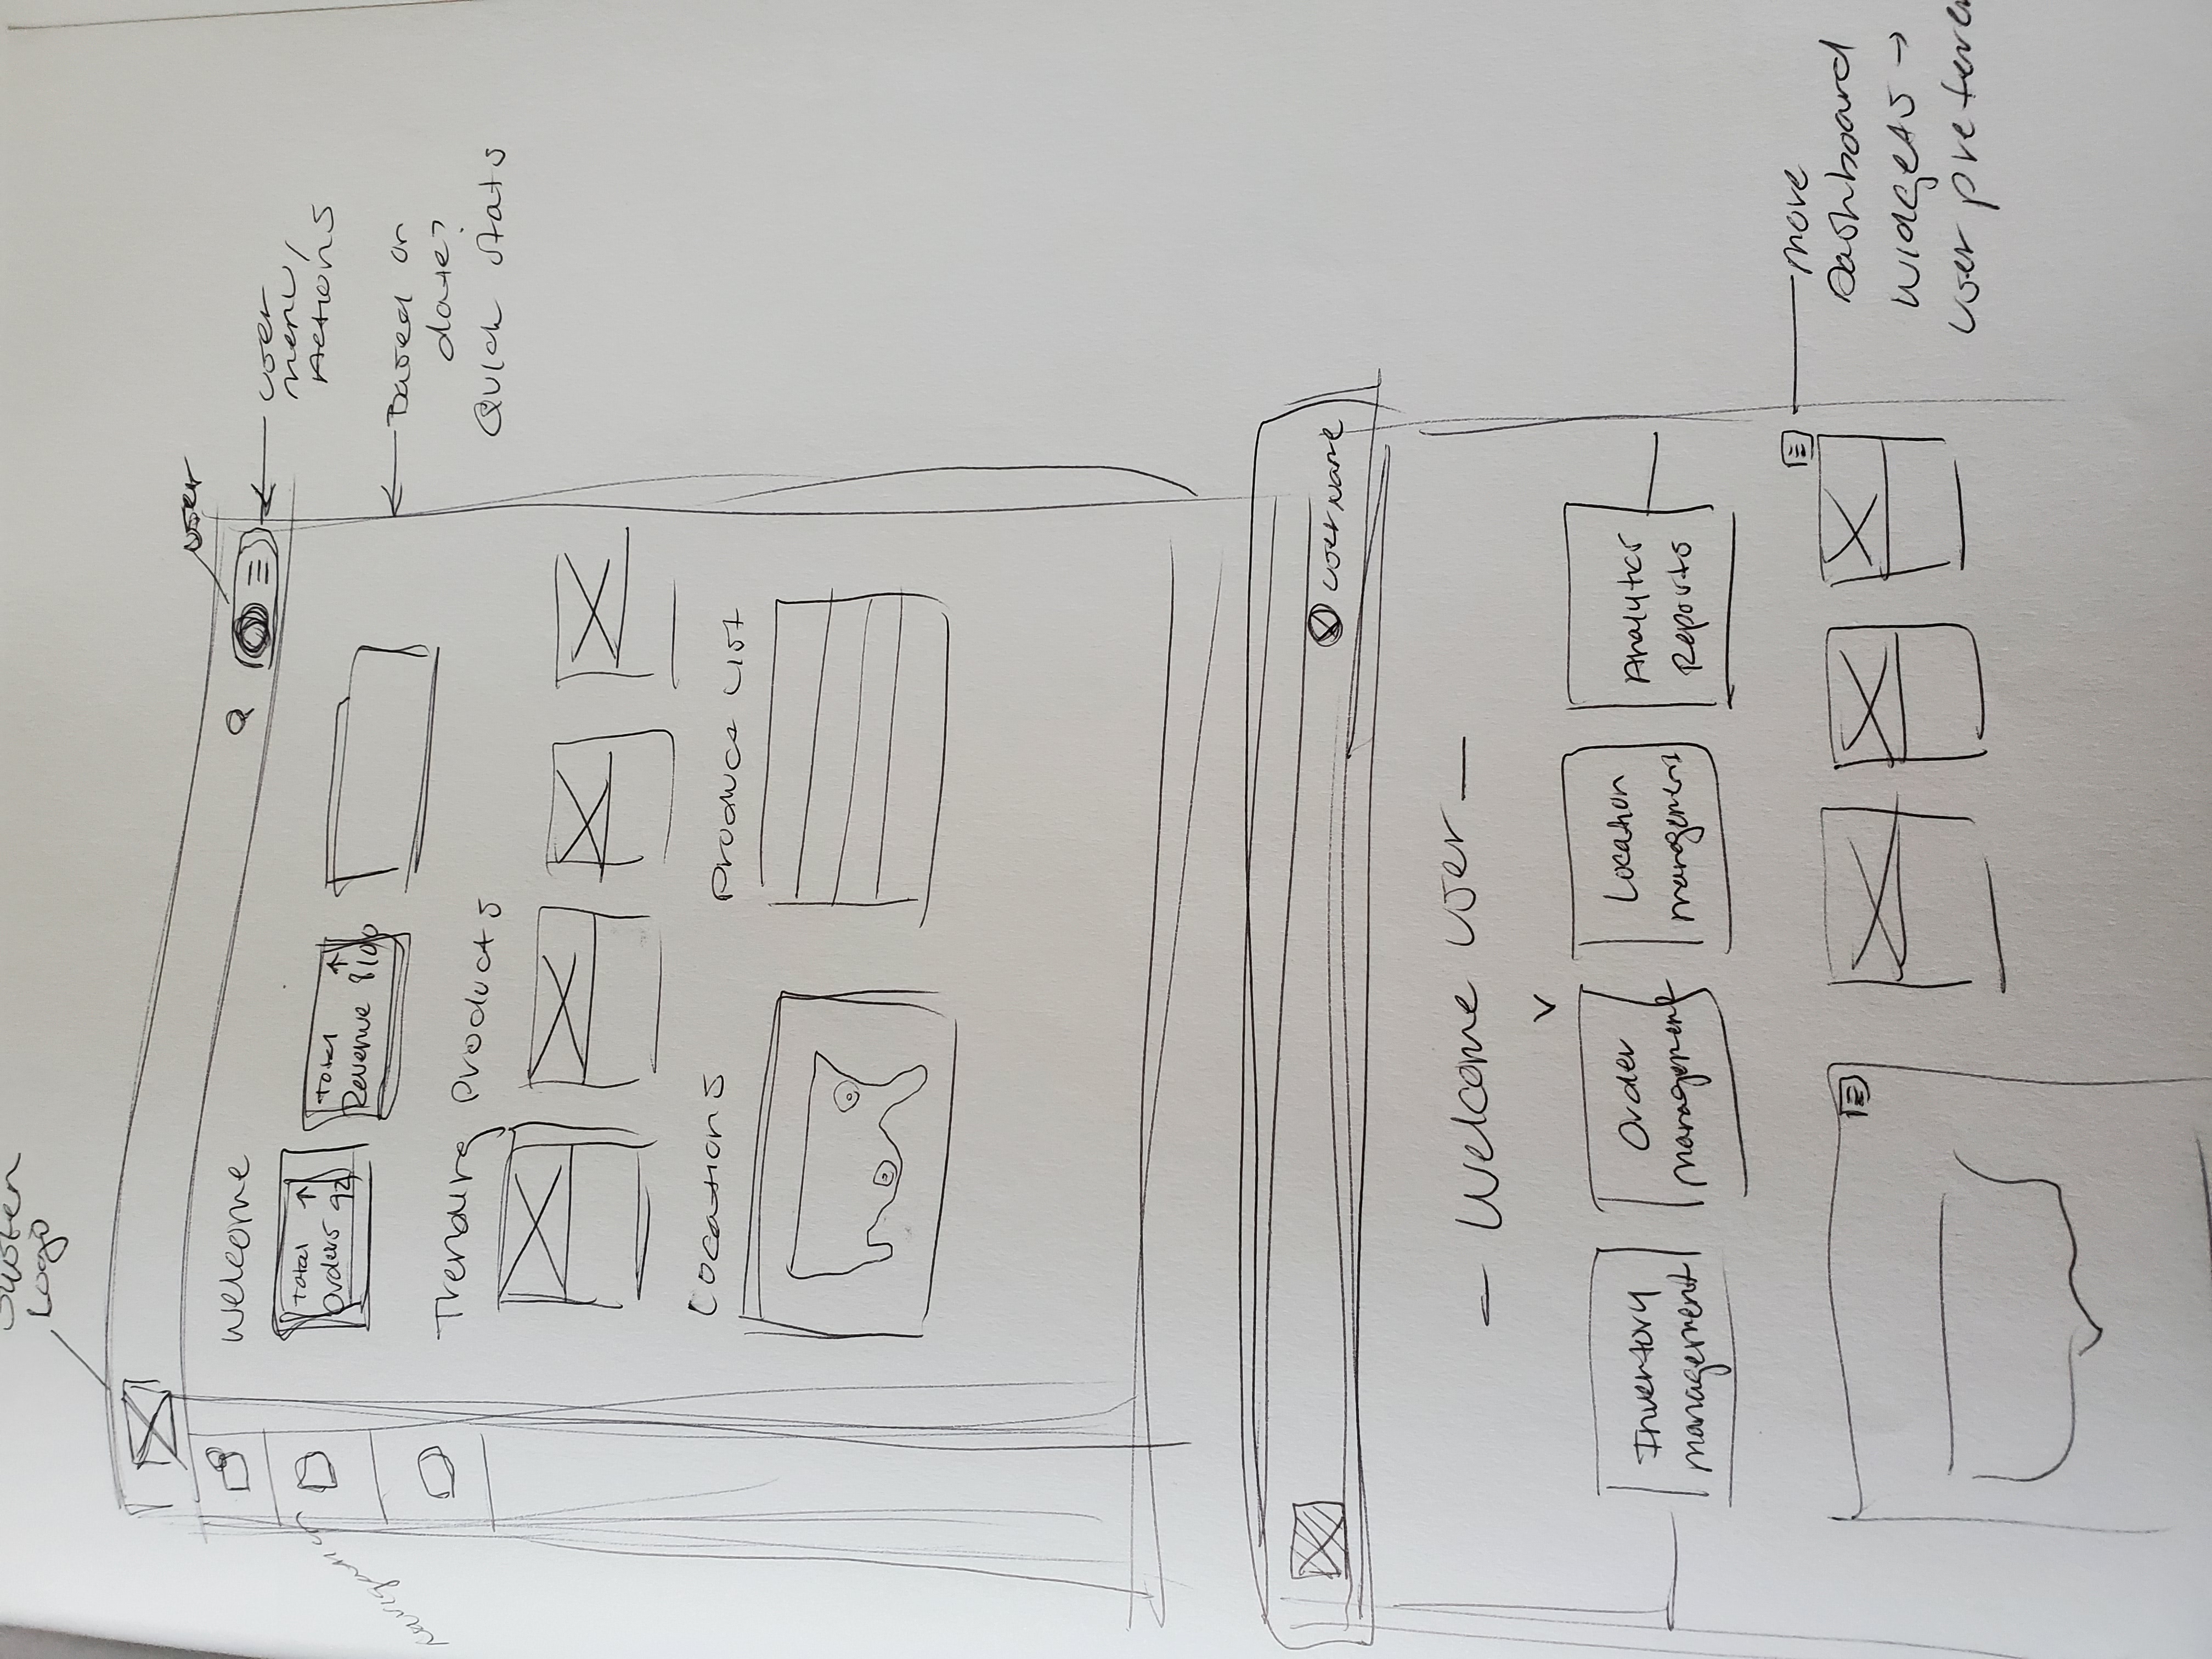 System
Logo
user
Welcome
user
menu/
Actions
Total
Orders 92
Total
Revenue 8100
Navigation
Based on
date?
Quick stats
Trending Products
Locations
Product List
User Name
- Welcome User -
Inventory
management
Order
management
Location
management
Analytics
Reports
move
Dashboard
widgets →
User prefere